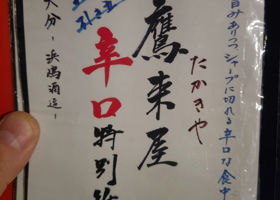 旨みありつつシャープに切れる辛口な食中
たかきや
鷹来屋
辛口特別
大分・浜嶋酒造・